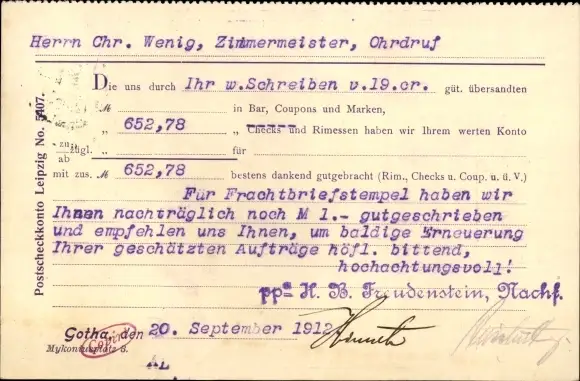 Herrn Chr. Wenig, Zimmermeister, Ohrdruf
Die uns durch Ihr w.Schreiben v.19.cr. güt. übersandten
M in Bar, Coupons und Marken,
„ 652,78 „ Checks und Rimessen haben wir Ihrem werten Konto
zuzügl. „ für
ab
mit zus. M 652,78 bestens dankend gutgebracht (Rim., Checks u. Coup. u. ü. V.)
Für Frachtbriefstempel haben wir
Ihnen nachträglich noch M 1.- gutgeschrieben
und empfehlen uns Ihnen, um baldige Erneuerung
Ihrer geschätzten Aufträge höfl. bittend,
hochachtungsvoll!
ppa H. B. Freudenstein, Nachf.
Gotha, den 20. September 1912
Copirt
Mykoniusplatz 6.
AL
Postscheckkonto Leipzig No. 5407.